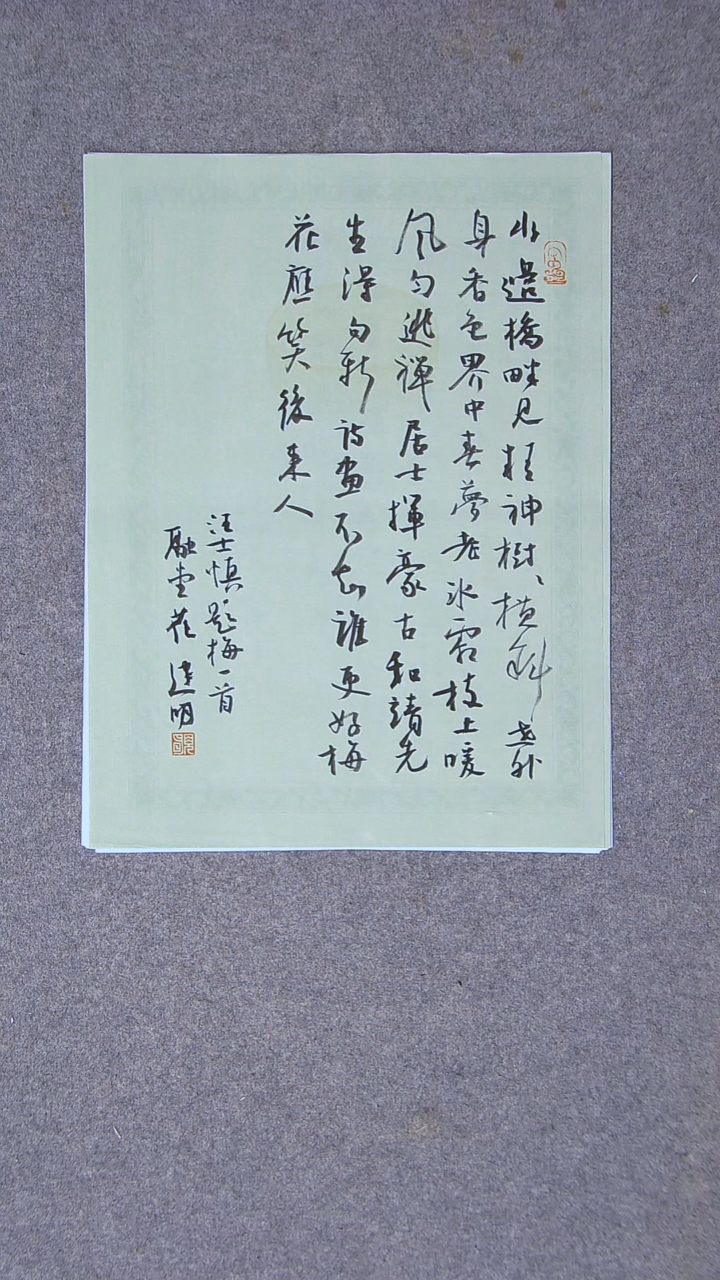 小邊橋畔見精神樹樹橫斜世外
身香色界中春夢老冰霜枝上暖
風勻逃禪居士揮豪古和靖先
生得句新詩畫不知誰更好梅
花應笑後來人
汪士慎題梅一首
融堂 建明